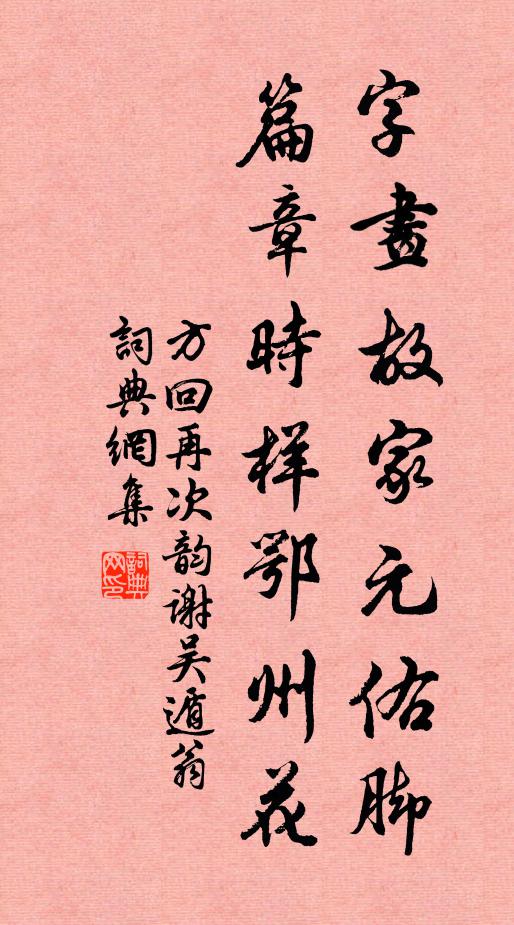 字畫故家元佑脚
篇章時样鄂州花
方回再次韵谢吴遁翁
詞典網集
詞典网印